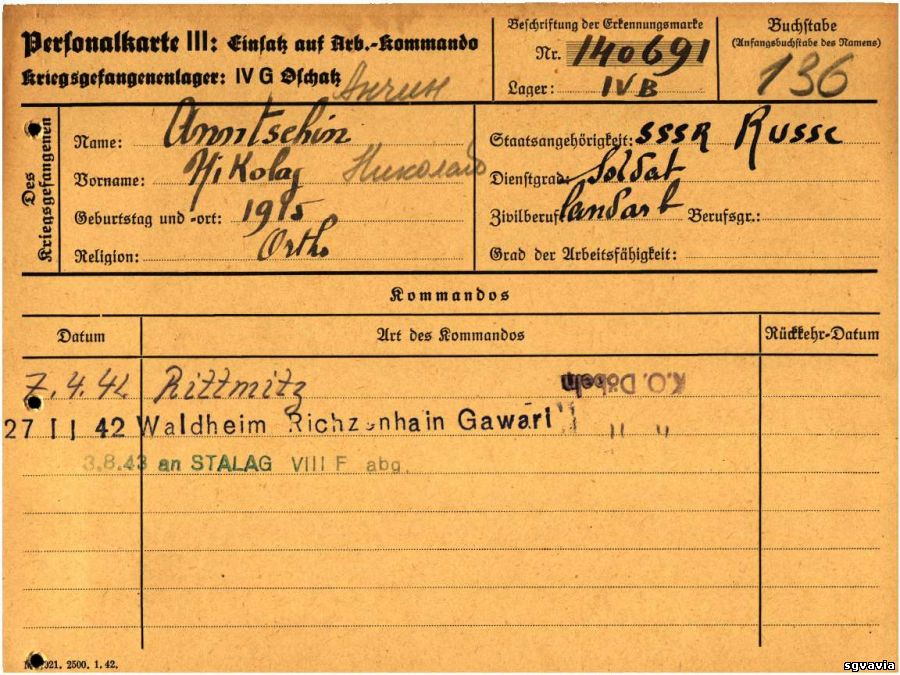 Personalkarte III: Einsatz auf Arb.-Kommando
Kriegsgefangenenlager: IV G Oschatz
Beschriftung der Erkennungsmarke
Nr. 140691
Lager: IV B
Buchstabe
(Anfangsbuchstabe des Namens)
136
Анчин
Des Kriegsgefangenen
Name: Anntschin
Vorname: Nikolaj Николай
Geburtstag und -ort: 1915
Religion: Orth.
Staatsangehörigkeit: SSSR Russe
Dienstgrad: Soldat
Zivilberuf: Landarb Berufsgr.:
Grad der Arbeitsfähigkeit:
Kommandos
Datum Art des Kommandos Rückkehr-Datum
7.4.42 Rittmitz K.O. Döbeln
27 11 42 Waldheim Richzenhain Gawari " "
3.8.43 an STALAG VIII F abg.
021. 2500. 1. 42.
sgvavia